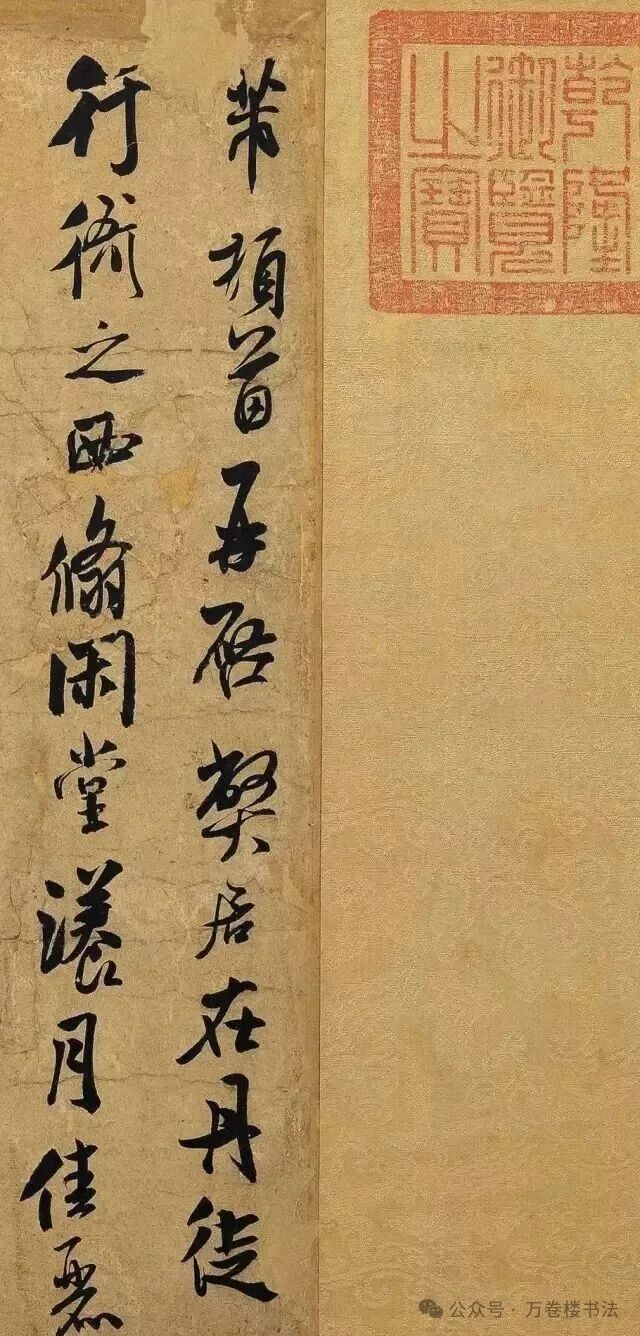 乾隆
御覽
之寶
芾頓首再启弊居在丹徒
行衙之西翛閑堂漾月佳麗
公众号·万卷楼书法